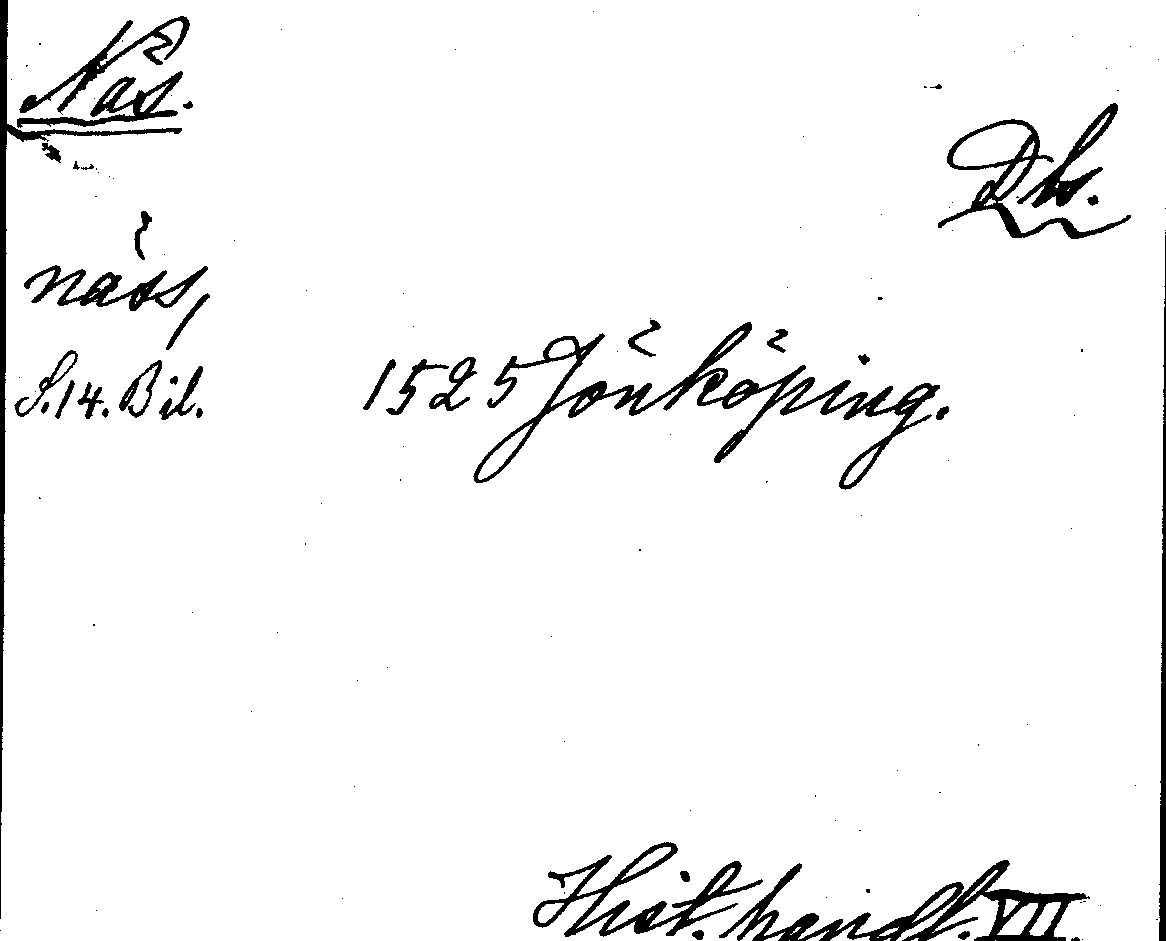 Näs.
Dls.
näss,
S.14. Bil. 1525 Jönköping.
Hist. handl. VII.